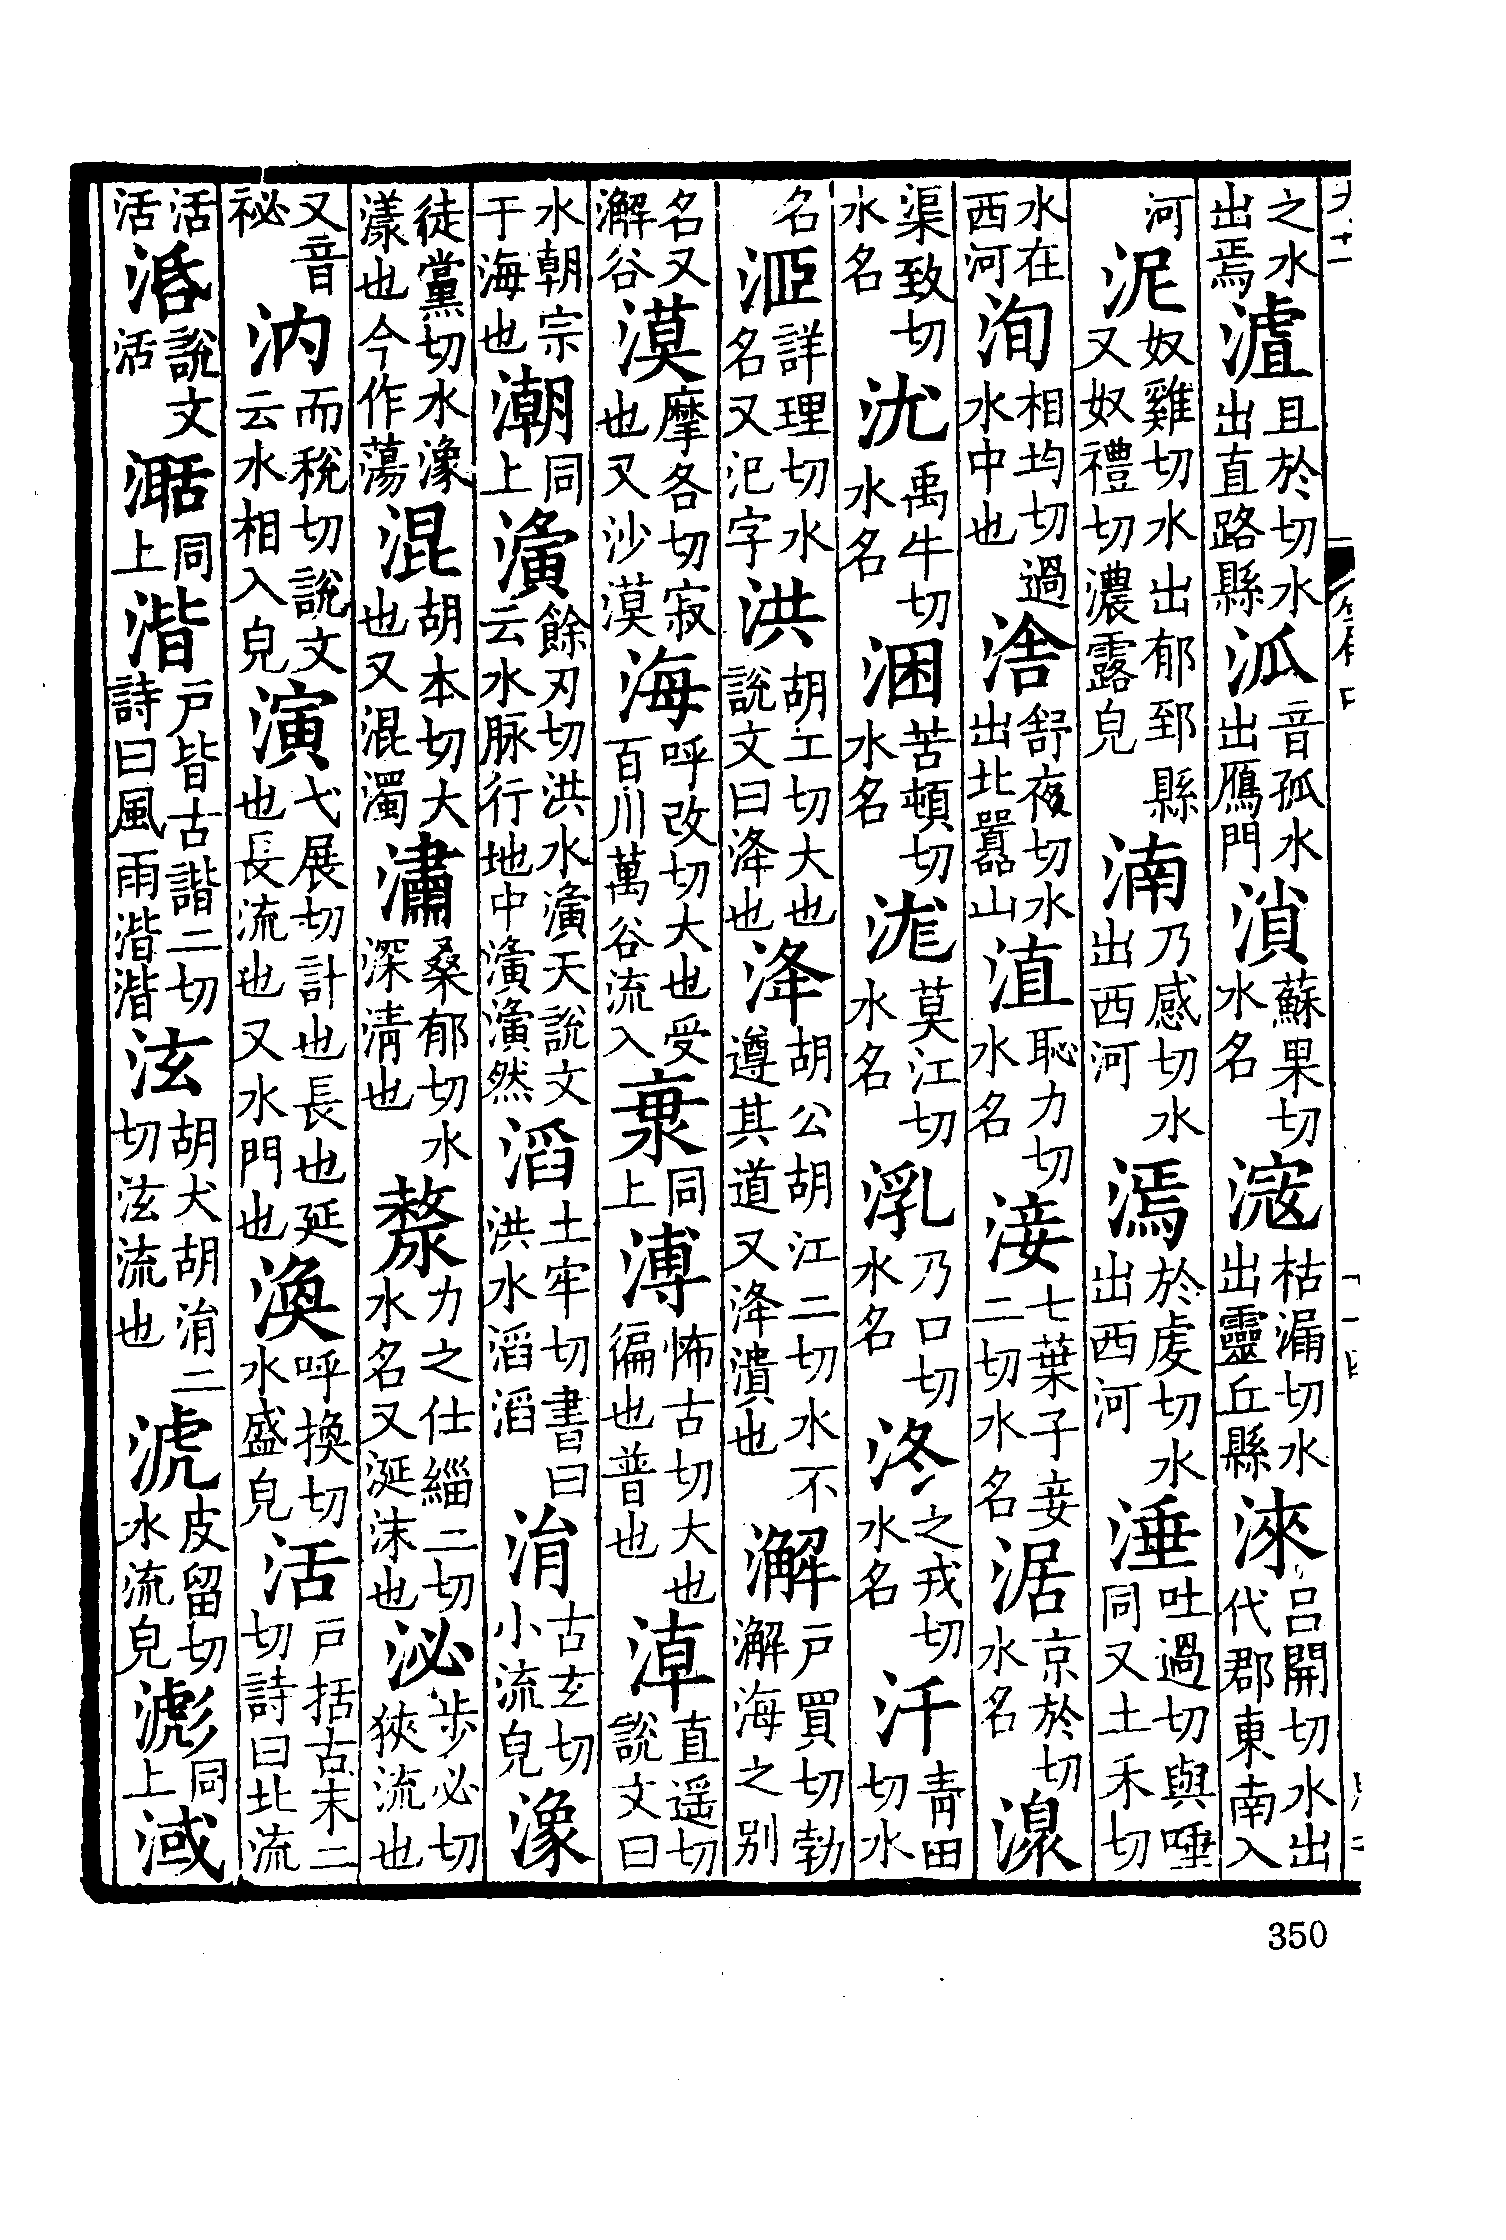 之水出焉瀘且於切水出直路縣泒音孤水出鴈門溑蘇果切水名滱枯漏切水出靈丘縣淶呂開切水出代郡東南入
河泥奴雞切水出郁郅縣又奴禮切濃露皃湳乃感切水出西河漹於虔切水出西河涶吐過切與唾同又土禾切
水在西河洵相均切過水中也涻舒夜切水出北嚻山淔恥力切水名淁七葉子妾二切水名涺京於切水名濵
渠致切水名沋禹牛切水名涃苦頓切水名浝莫江切水名乳乃口切水名泈之戎切水名汘青田切水
名洍詳理切水名又汜字洪胡工切大也說文曰洚也洚胡公胡江二切水不遵其道又洚潰也澥戶買切勃澥海之別
名又澥谷漠摩各切寂也又沙漠海呼改切大也受百川萬谷流入㴴同上溥怖古切大也徧也普也淖直遥切說文曰
水朝宗于海也潮同上濥餘刃切洪水濥天說文云水脉行地中濥濥然滔土牢切書曰洪水滔滔涓古玄切小流皃潒
徒黨切水潒瀁也今作蕩混胡本切大也又混濁潚桑郁切水深清也漦力之仕緇二切水名又涎沫也泌步必切狹流也
又音祕汭而稅切說文云水相入皃演弋展切計也長也延也長流也又水門也渙呼換切水盛皃活戶括古末二切詩曰北流
活活湉說文活㵧同上湝戶皆古諧二切詩曰風雨湝湝泫胡犬胡涓二切泫流也淲皮留切水流皃滮同上淢
350